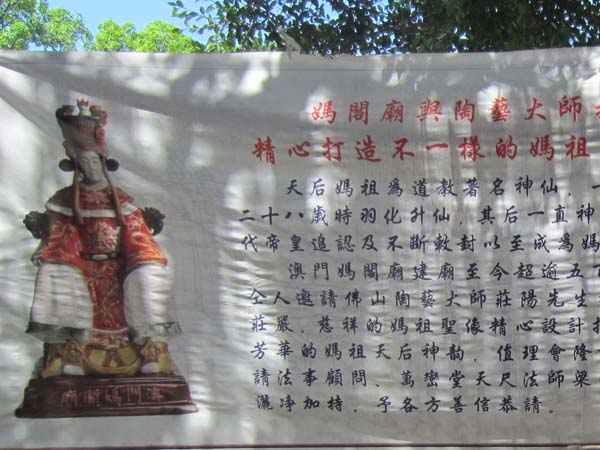 媽閣廟與陶藝大師
精心打造不一樣的媽祖
天后媽祖為道教著名神仙．一
二十八歲時羽化升仙．其后一直神
代帝皇追認及不斷敕封以至成為媽
澳門媽閣廟建廟至今超逾五
仝人邀請佛山陶藝大師莊陽先生
莊嚴．慈祥的媽祖聖像精心設計
芳華的媽祖天后神韵．值理會隆
請法事顧問．萬巒堂天尺法師梁
灑淨加持．予各方善信恭請．